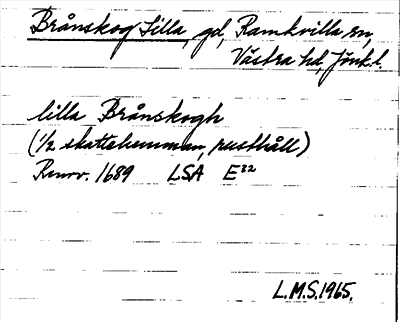 Brånskog Lilla, gd, Ramkvilla sn,
Västra hd, Jönk.l.
lilla Brånskogh
(1/2 skattehemman, rusthåll)
Renov. 1689 LSA E³²
L.M.S.1965.